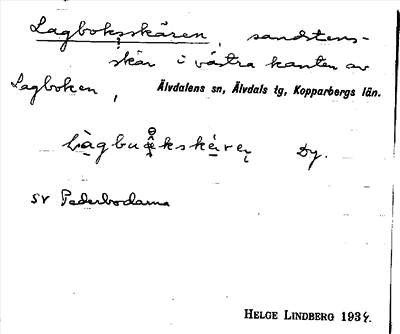 Lagboksskären, sandstens-
skär i västra kanten av
Lagboken, Älvdalens sn, Älvdals tg, Kopparbergs län.
Dy.
SV Pederbodarna
HELGE LINDBERG 1934.